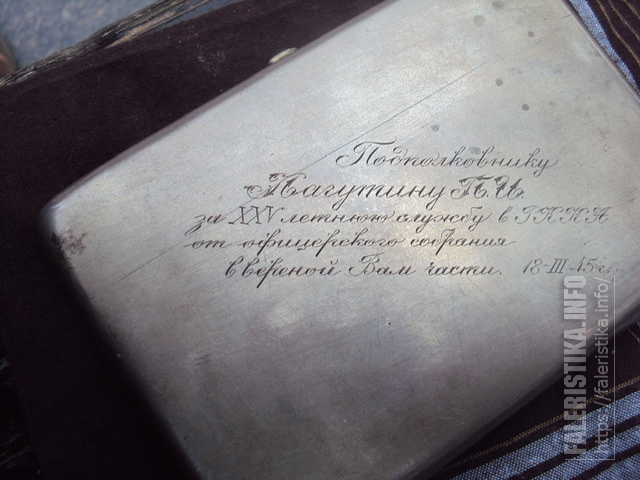 Подполковнику
Лагутину П.И.
за XXV летнюю службу в РККА
от офицерского собрания
ввереной Вам части. 18-III-45 г.
FALERISTIKA.INFO
https://faleristika.info/